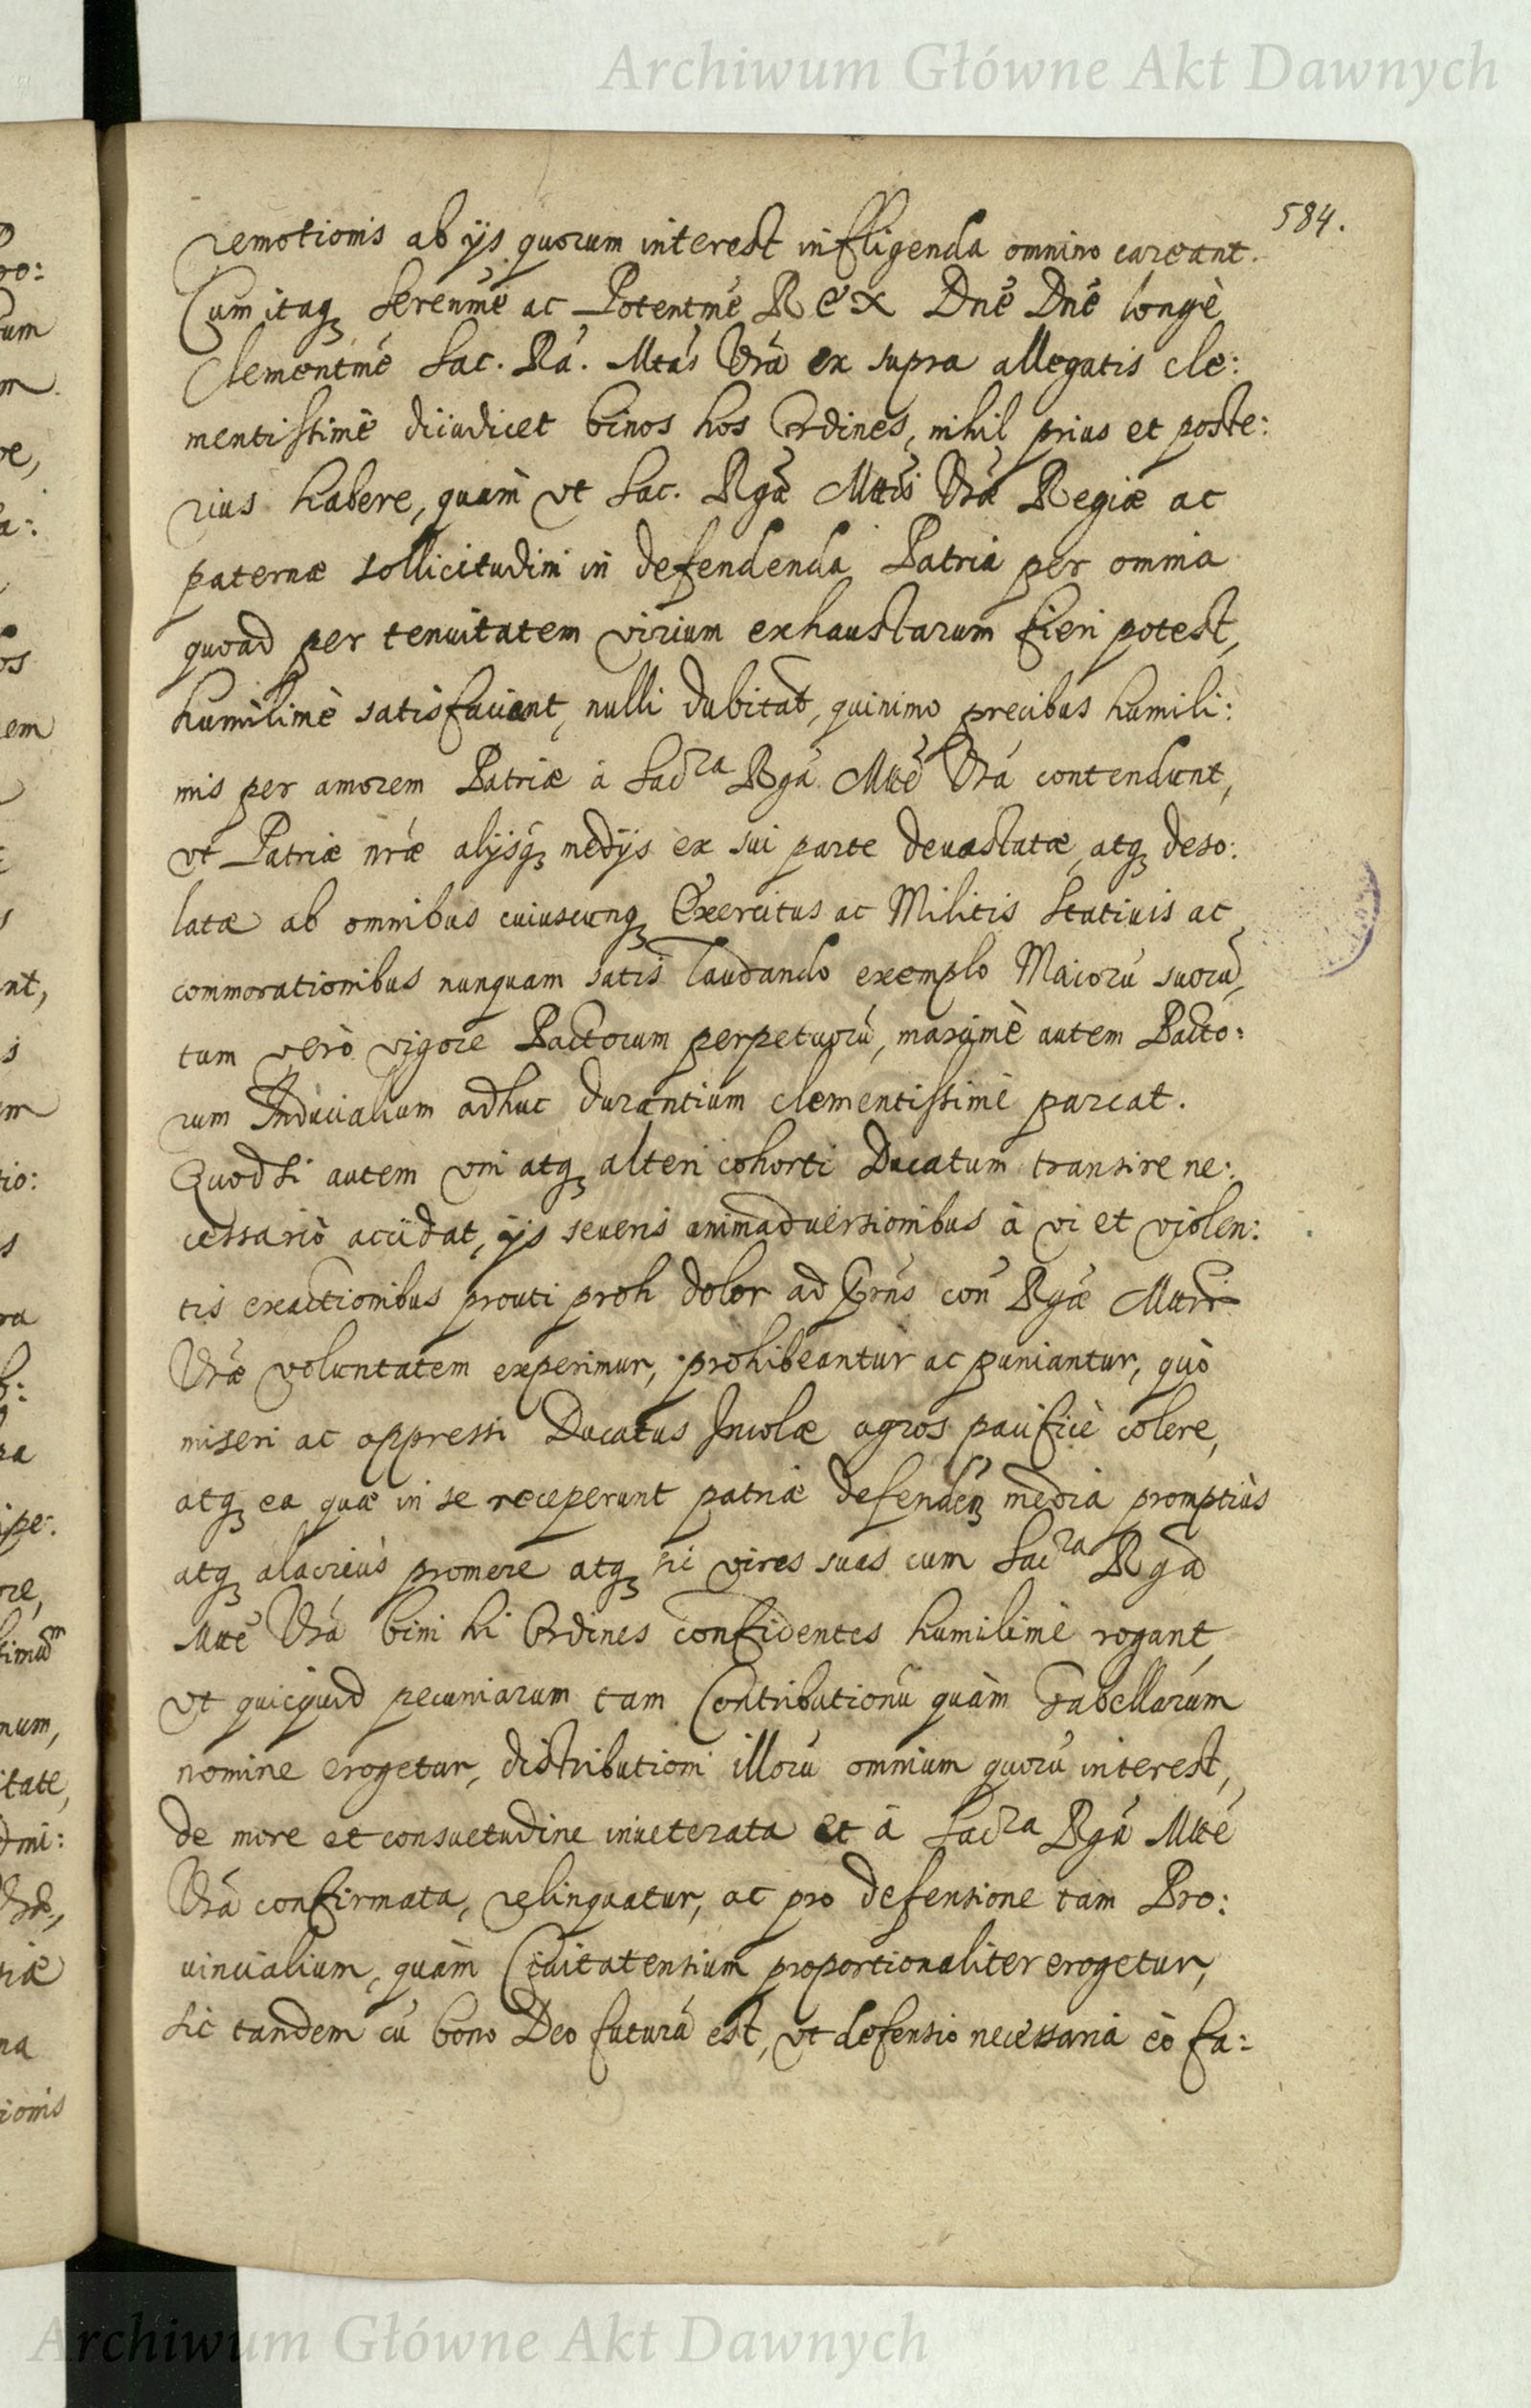 Archiwum Główne Akt Dawnych
584.
remotionis ab ijs quorum interest infligenda omnino careant.
Cum itaq₃ Serenmè ac Potentmè REX Dnè Dnè longè
Clementmè Sac. Rá. Mtás Vrá ex supra allegatis cle:
mentissimè diiudicet binos hos Ordines, nihil prius et poste:
rius habere, quàm vt Sac. Rgæ Mtis Vræ Regiæ ac
paternæ sollicitudini in defendenda Patria per omnia
quoad per tenuitatem virium exhaustarum fieri potest,
humilimè satisfaciant, nulli dubitat, quinimo precibus humili:
mis per amorem Patriæ à Sacra Rgá Mtte Vrá contendunt,
vt Patriæ nræ alijsq₃ medijs ex sui parte deuastatæ, atq₃ deso:
latæ ab omnibus cuiuscunq₃ Exercitus ac Militis Statiuis ac
commorationibus nunquam satis laudando exemplo Maiorú suorú,
tum verò vigore Pactorum perpetuorú, maximè autem Pacto:
rum Induciatium adhuc durantium clementissimè parcat.
Quod si autem vni atq₃ alteri cohorti Ducatum transire ne:
cessariò accidat, ijs seueris animaduersionibus à vi et violen:
tis exactionibus prouti proh dolor ad prns con Rgæ Mtti
Vræ voluntatem experimur, prohibeantur ac puniantur, quò
miseri ac oppressi Ducatus Incolæ agros pacificè colere,
atq₃ ea quæ in se receperunt patriæ defenden media promptiùs
atq₃ alacriùs promere atq₃ si vires suas cum Sacra Rgá
Mtte Vrá bini hi Ordines confidentes humilimè rogant,
vt quicquid pecuniarum tam Contributionú quàm Gabellarum
nomine erogetur, distributioni illorú omnium quorú interest,
de more et consuetudine inueterata et à Sacra Rgá Mtte
Vrá confirmata, relinquatur, ac pro defensione tam Pro:
uincialium, quàm Ciuitatensium proportionaliter erogetur,
sic tandem cú bono Deo futurá est, vt defensio necessaria eò fa:
Archiwum Główne Akt Dawnych